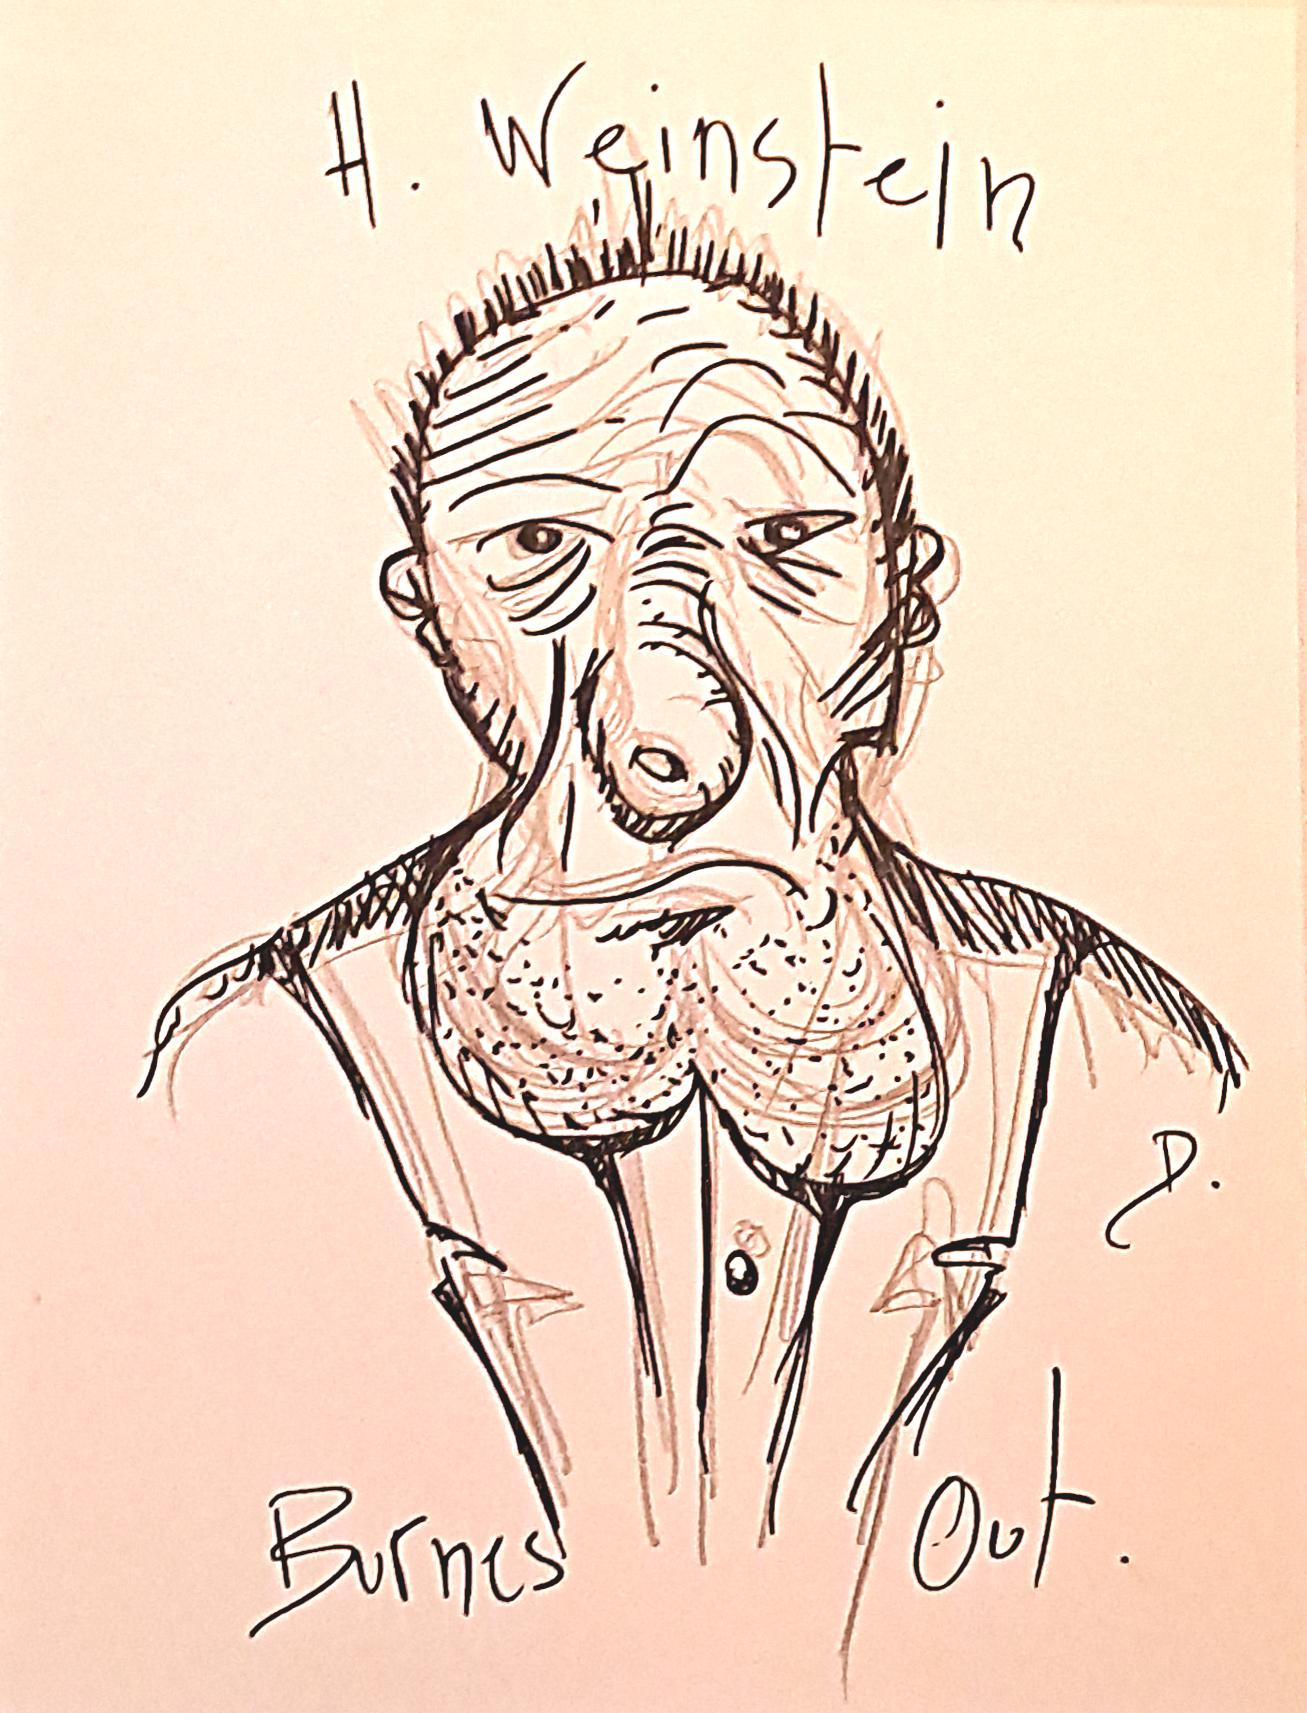 H. Weinstein
D.
Burnes Out.